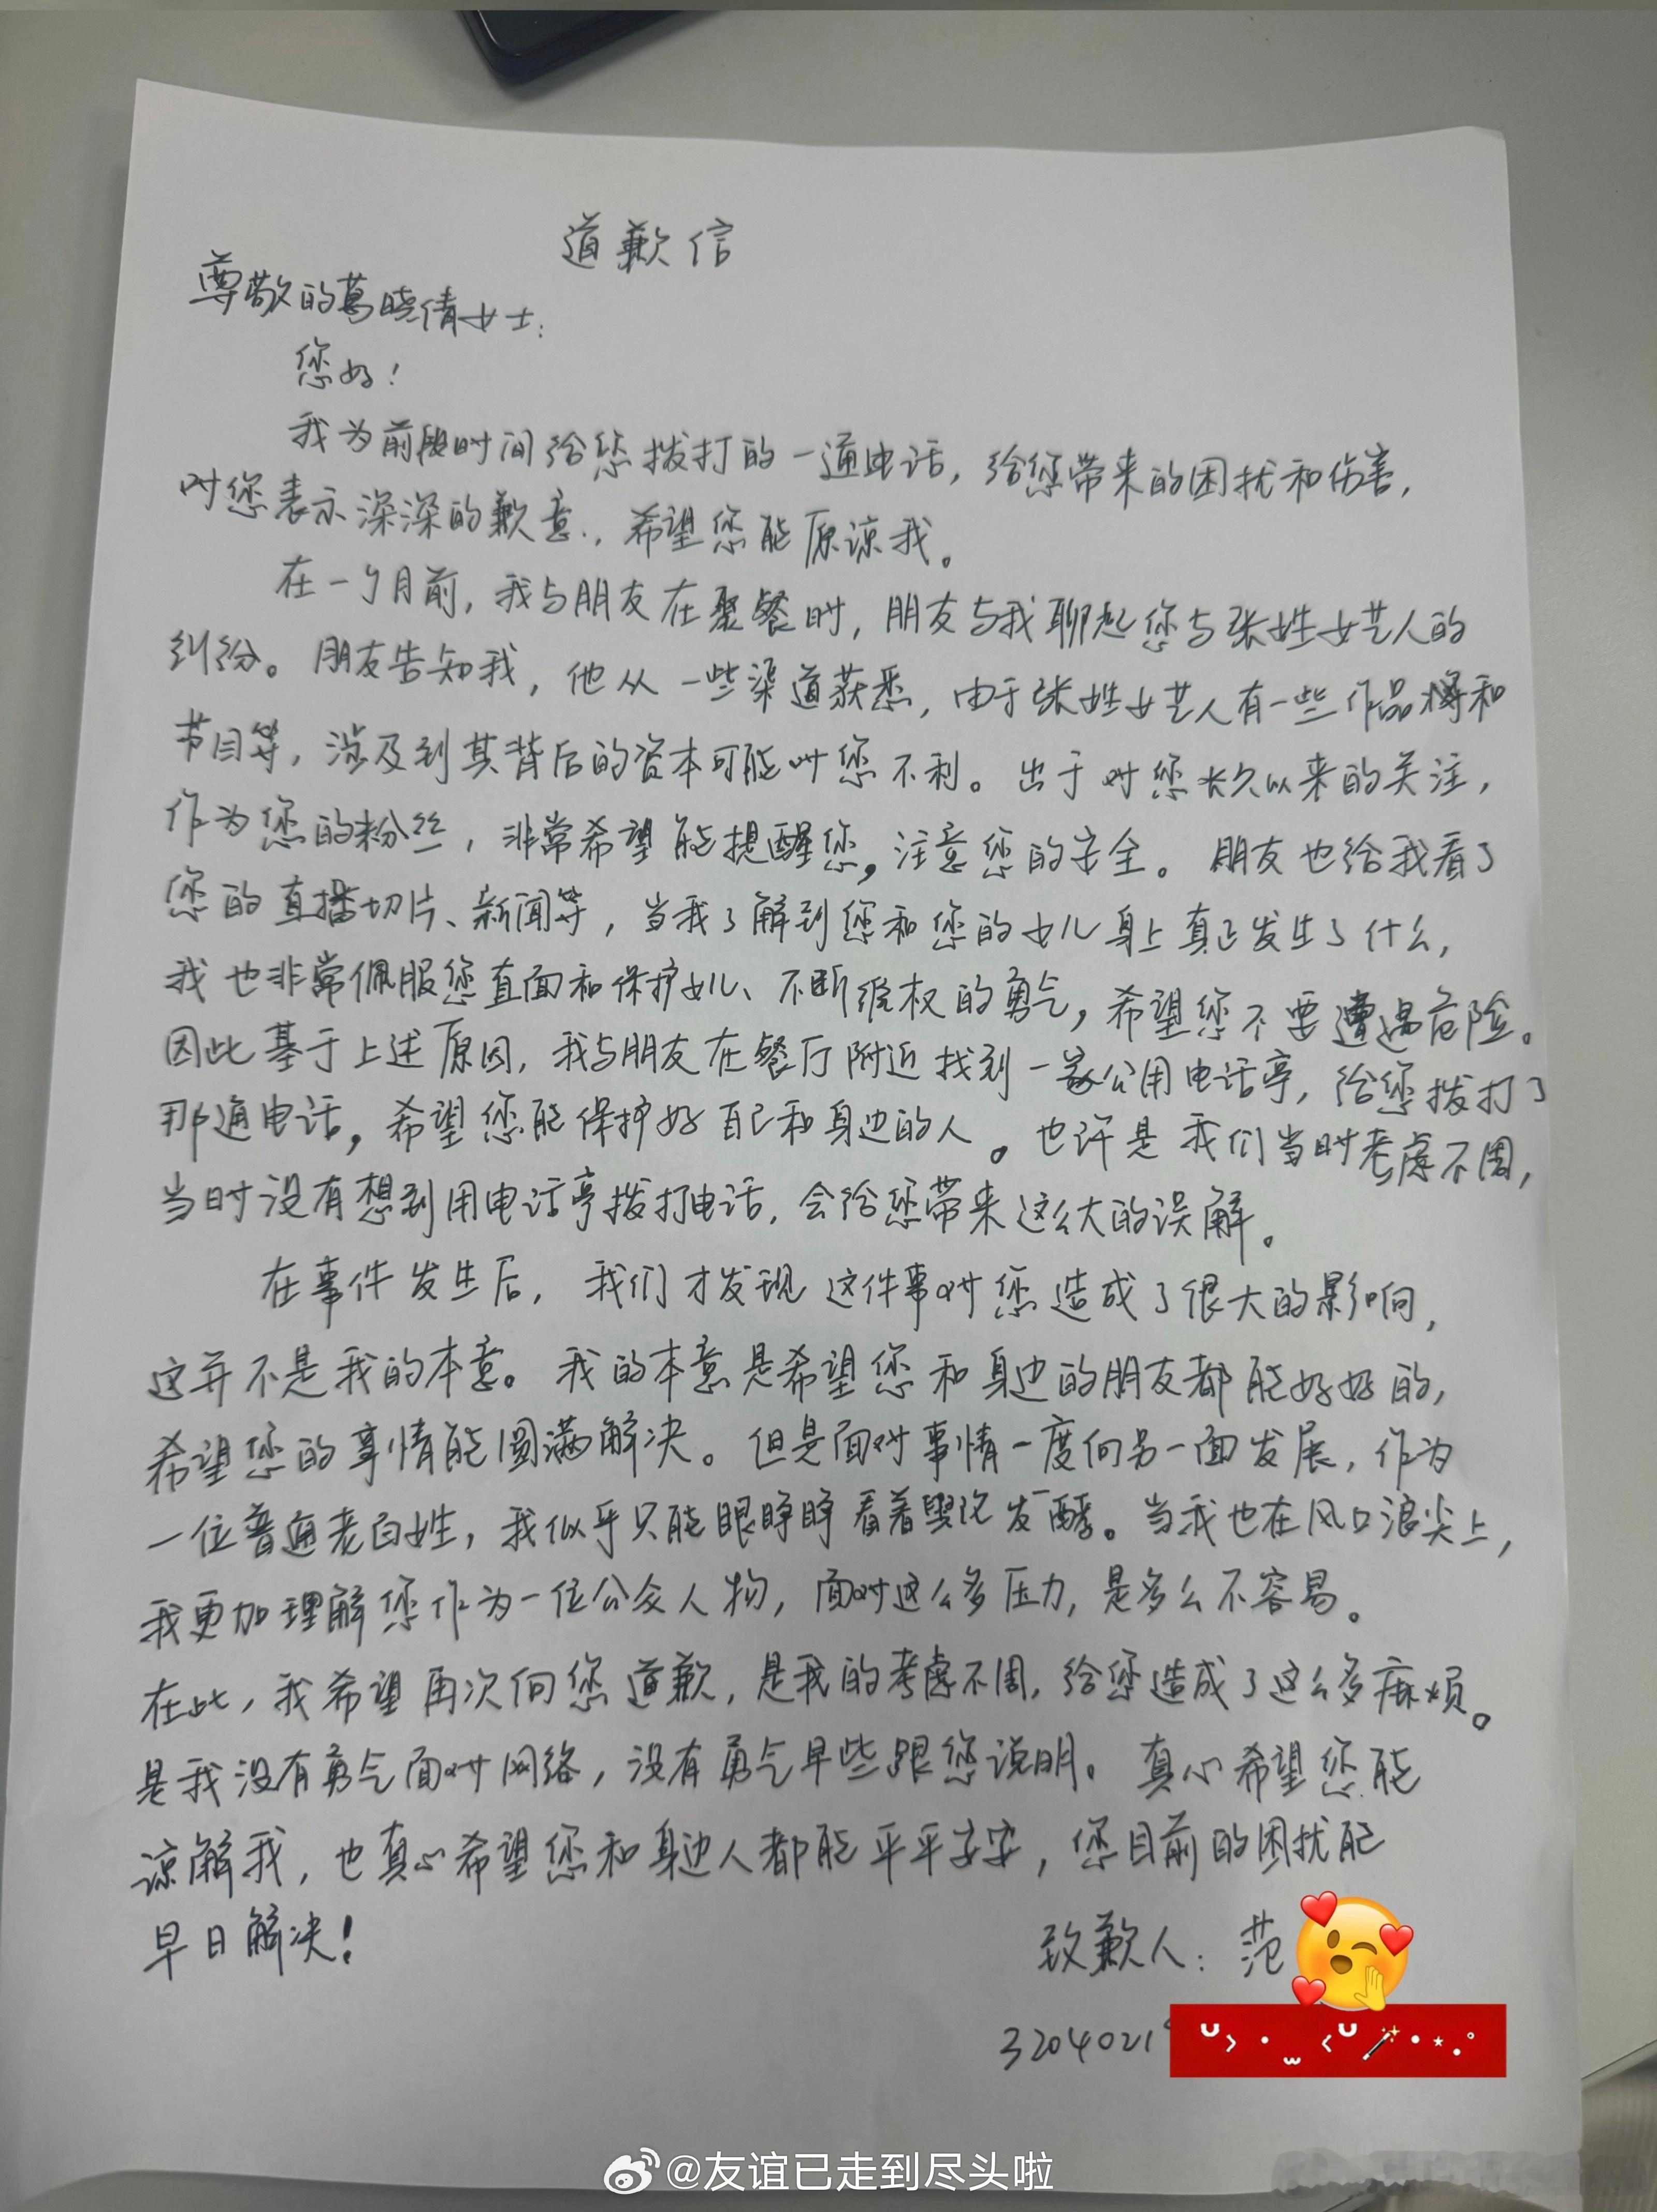 道歉信
尊敬的葛晓倩女士:
您好!
我为前段时间给您拨打的一通电话,给您带来的困扰和伤害,
对您表示深深的歉意,希望您能原谅我。
在一个月前,我与朋友在聚餐时,朋友与我聊起您与张姓女艺人的
纠纷。朋友告知我,他从一些渠道获悉,由于张姓女艺人有一些作品和
节目等,涉及到其背后的资本可能对您不利。出于对您长久以来的关注,
作为您的粉丝,非常希望能提醒您,注意您的安全。朋友也给我看了
您的直播切片、新闻等,当我了解到您和您的女儿身上真正发生了什么,
我也非常佩服您直面和保护女儿、不断维权的勇气,希望您不要遭遇危险。
因此基于上述原因,我与朋友在餐厅附近找到一家公用电话亭,给您拨打了
那通电话,希望您能保护好自己和身边的人。也许是我们当时考虑不周,
当时没有想到用电话亭拨打电话,会给您带来这么大的误解。
在事件发生后,我们才发现这件事对您造成了很大的影响,
这并不是我的本意。我的本意是希望您和身边的朋友都能好好的,
希望您的事情能圆满解决。但是面对事情一度向另一面发展,作为
一位普通老百姓,我似乎只能眼睁睁看着舆论发酵。当我也在风口浪尖上,
我更加理解您作为一位公众人物,面对这么多压力,是多么不容易。
在此,我希望再次向您道歉,是我的考虑不周,给您造成了这么多麻烦。
是我没有勇气面对网络,没有勇气早些跟您说明。真心希望您能
谅解我,也真心希望您和身边人都能平平安安,您目前的困扰能
早日解决!
致歉人:范
3204021
@友谊已走到尽头啦